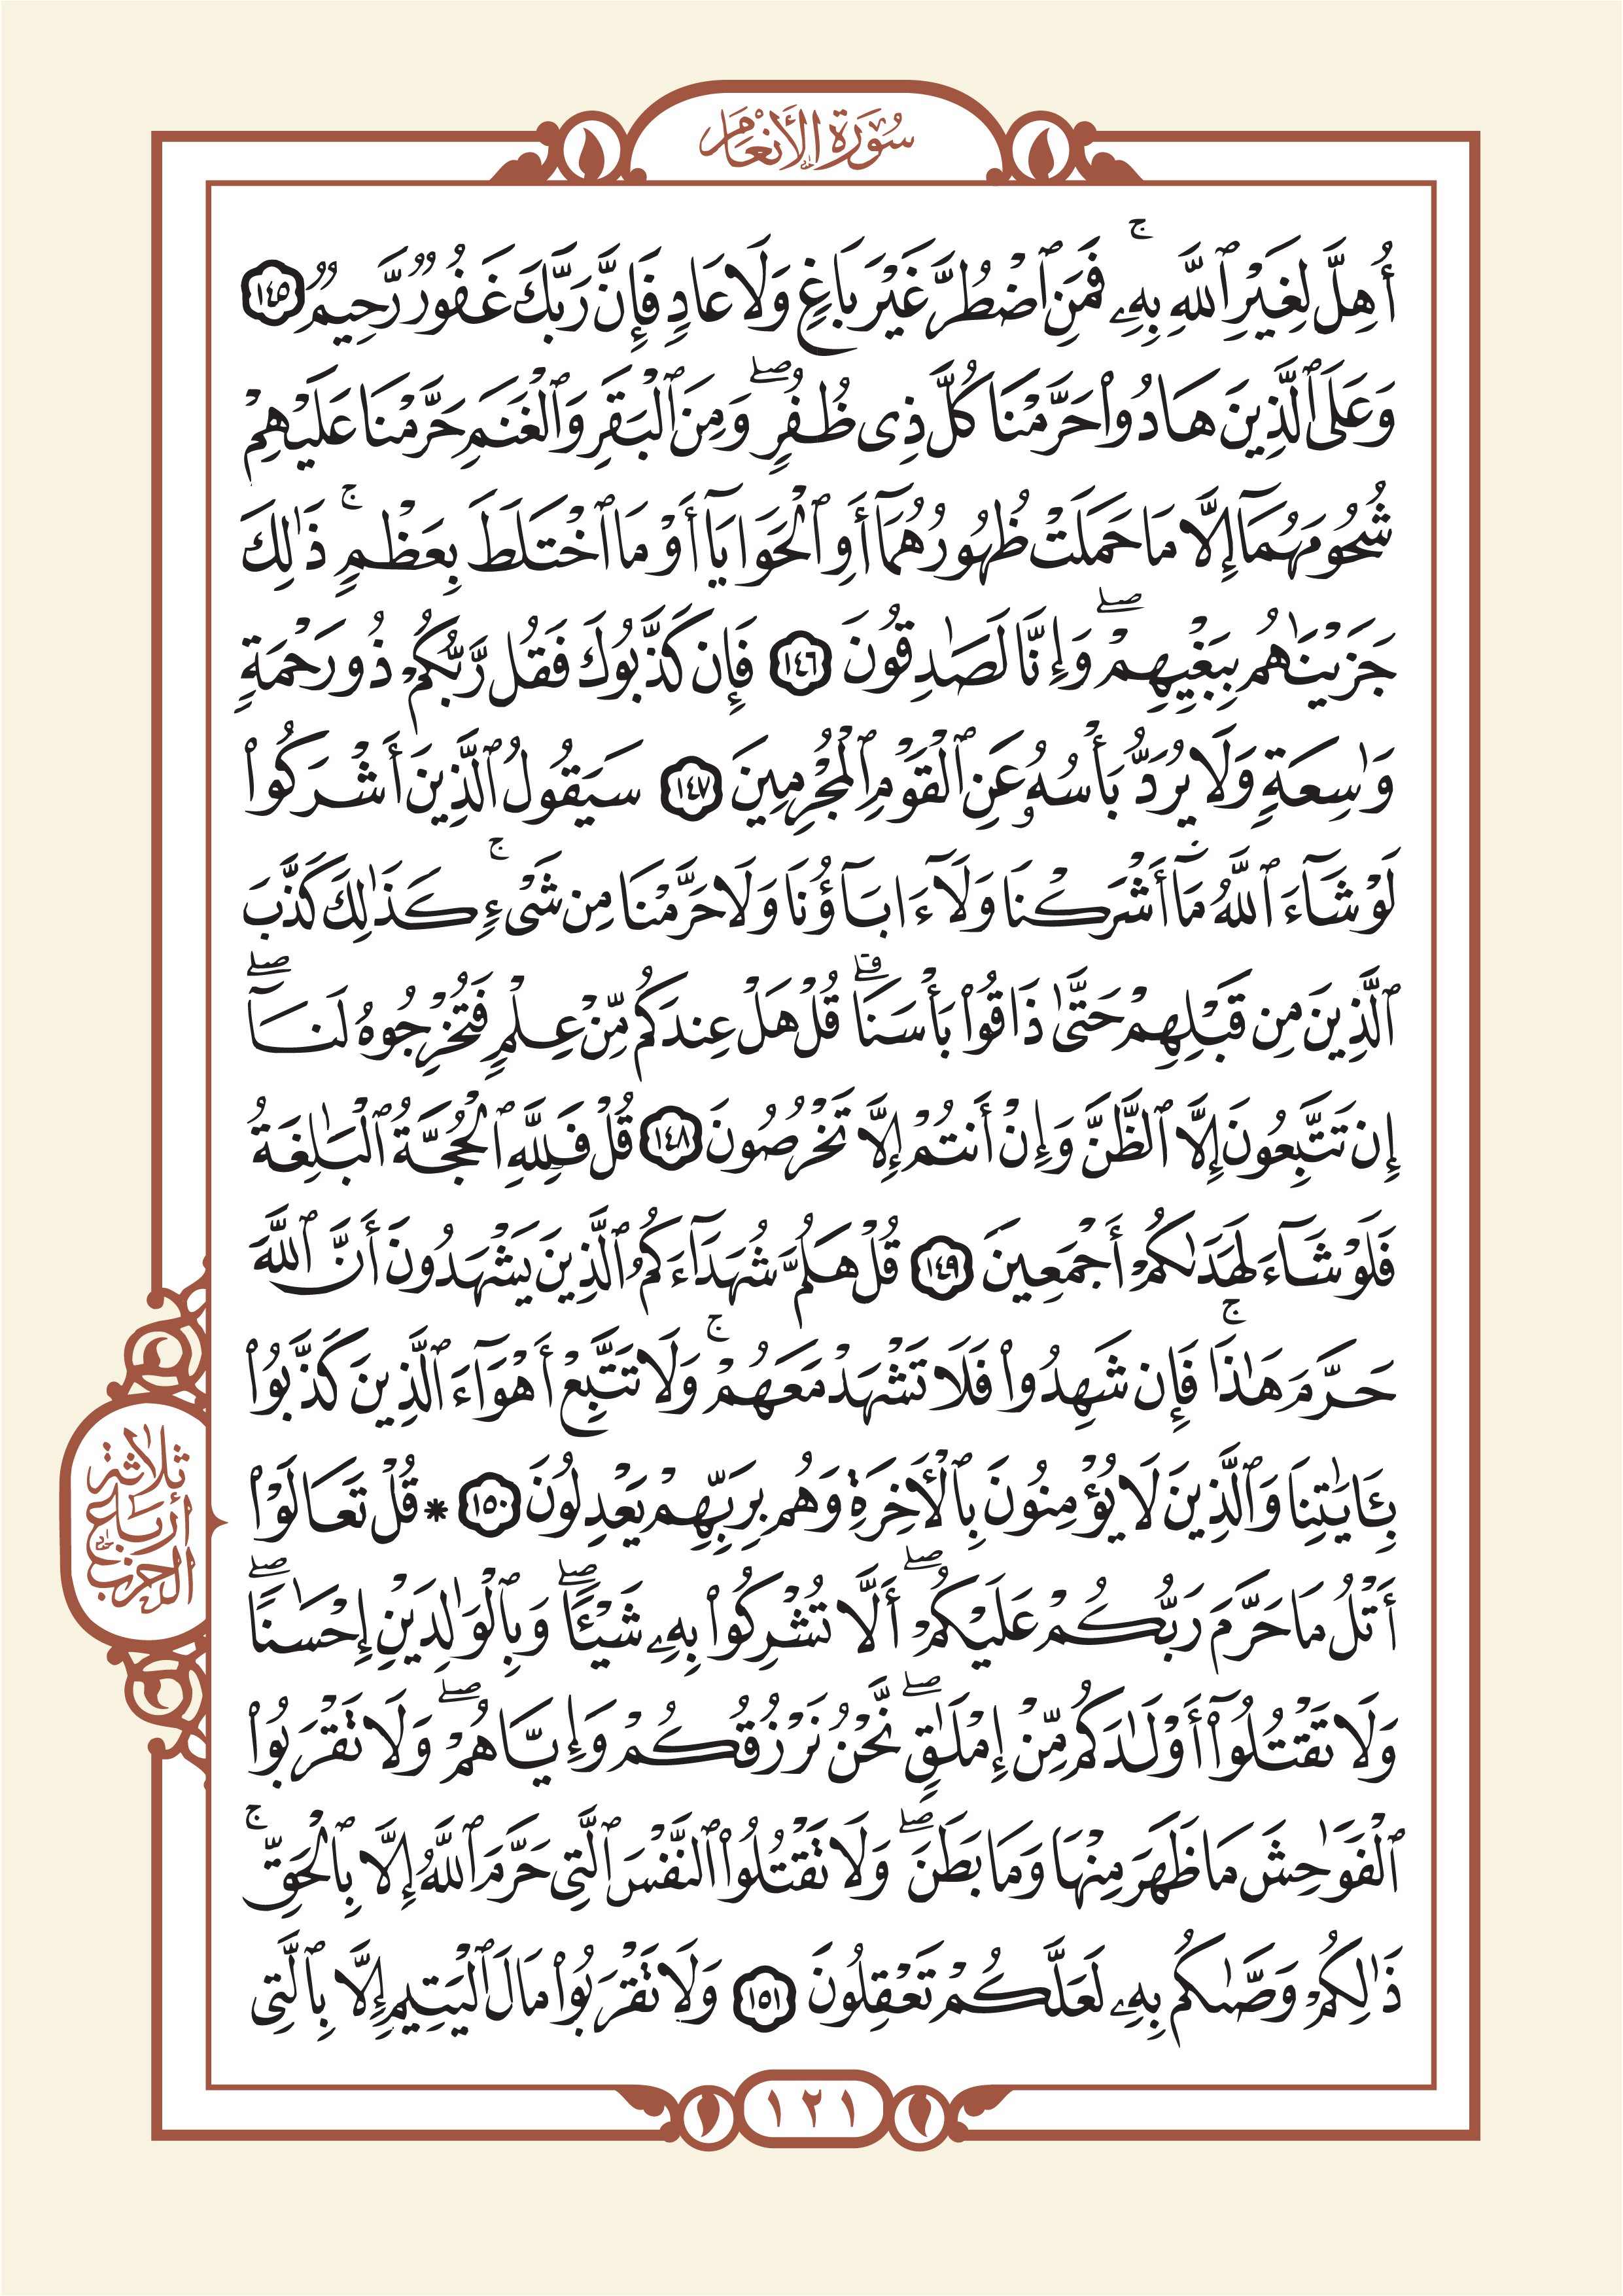 سُورَةُ الأَنْعَام
أُهِلَّ لِغَيْرِ ٱللَّهِ بِهِۦۚ فَمَنِ ٱضْطُرَّ غَيْرَ بَاغٍ وَلَا عَادٍ فَإِنَّ رَبَّكَ غَفُورٌ رَّحِيمٌ ١٤٥
وَعَلَى ٱلَّذِينَ هَادُوا۟ حَرَّمْنَا كُلَّ ذِى ظُفُرٍۖ وَمِنَ ٱلْبَقَرِ وَٱلْغَنَمِ حَرَّمْنَا عَلَيْهِمْ
شُحُومَهُمَآ إِلَّا مَا حَمَلَتْ ظُهُورُهُمَآ أَوِ ٱلْحَوَايَآ أَوْ مَا ٱخْتَلَطَ بِعَظْمٍۚ ذَٰلِكَ
جَزَيْنَٰهُم بِبَغْيِهِمْۖ وَإِنَّا لَصَٰدِقُونَ ١٤٦ فَإِن كَذَّبُوكَ فَقُل رَّبُّكُمْ ذُو رَحْمَةٍ
وَٰسِعَةٍ وَلَا يُرَدُّ بَأْسُهُۥ عَنِ ٱلْقَوْمِ ٱلْمُجْرِمِينَ ١٤٧ سَيَقُولُ ٱلَّذِينَ أَشْرَكُوا۟
لَوْ شَآءَ ٱللَّهُ مَآ أَشْرَكْنَا وَلَآ ءَابَآؤُنَا وَلَا حَرَّمْنَا مِن شَىْءٍۚ كَذَٰلِكَ كَذَّبَ
ٱلَّذِينَ مِن قَبْلِهِمْ حَتَّىٰ ذَاقُوا۟ بَأْسَنَاۗ قُلْ هَلْ عِندَكُم مِّنْ عِلْمٍ فَتُخْرِجُوهُ لَنَآۖ
إِن تَتَّبِعُونَ إِلَّا ٱلظَّنَّ وَإِنْ أَنتُمْ إِلَّا تَخْرُصُونَ ١٤٨ قُلْ فَلِلَّهِ ٱلْحُجَّةُ ٱلْبَٰلِغَةُ
فَلَوْ شَآءَ لَهَدَىٰكُمْ أَجْمَعِينَ ١٤٩ قُلْ هَلُمَّ شُهَدَآءَكُمُ ٱلَّذِينَ يَشْهَدُونَ أَنَّ ٱللَّهَ
حَرَّمَ هَٰذَاۚ فَإِن شَهِدُوا۟ فَلَا تَشْهَدْ مَعَهُمْۚ وَلَا تَتَّبِعْ أَهْوَآءَ ٱلَّذِينَ كَذَّبُوا۟
بِـَٔايَٰتِنَا وَٱلَّذِينَ لَا يُؤْمِنُونَ بِٱلْأَخِرَةِ وَهُم بِرَبِّهِمْ يَعْدِلُونَ ١٥٠ * قُلْ تَعَالَوْا۟
أَتْلُ مَا حَرَّمَ رَبُّكُمْ عَلَيْكُمْۖ أَلَّا تُشْرِكُوا۟ بِهِۦ شَيْـًٔاۖ وَبِٱلْوَٰلِدَيْنِ إِحْسَٰنًاۖ
وَلَا تَقْتُلُوٓا۟ أَوْلَٰدَكُم مِّنْ إِمْلَٰقٍۖ نَّحْنُ نَرْزُقُكُمْ وَإِيَّاهُمْۖ وَلَا تَقْرَبُوا۟
ٱلْفَوَٰحِشَ مَا ظَهَرَ مِنْهَا وَمَا بَطَنَۖ وَلَا تَقْتُلُوا۟ ٱلنَّفْسَ ٱلَّتِى حَرَّمَ ٱللَّهُ إِلَّا بِٱلْحَقِّۚ
ذَٰلِكُمْ وَصَّىٰكُم بِهِۦ لَعَلَّكُمْ تَعْقِلُونَ ١٥١ وَلَا تَقْرَبُوا۟ مَالَ ٱلْيَتِيمِ إِلَّا بِٱلَّتِى
ثلاثة
أرباع
الحزب
١٢١